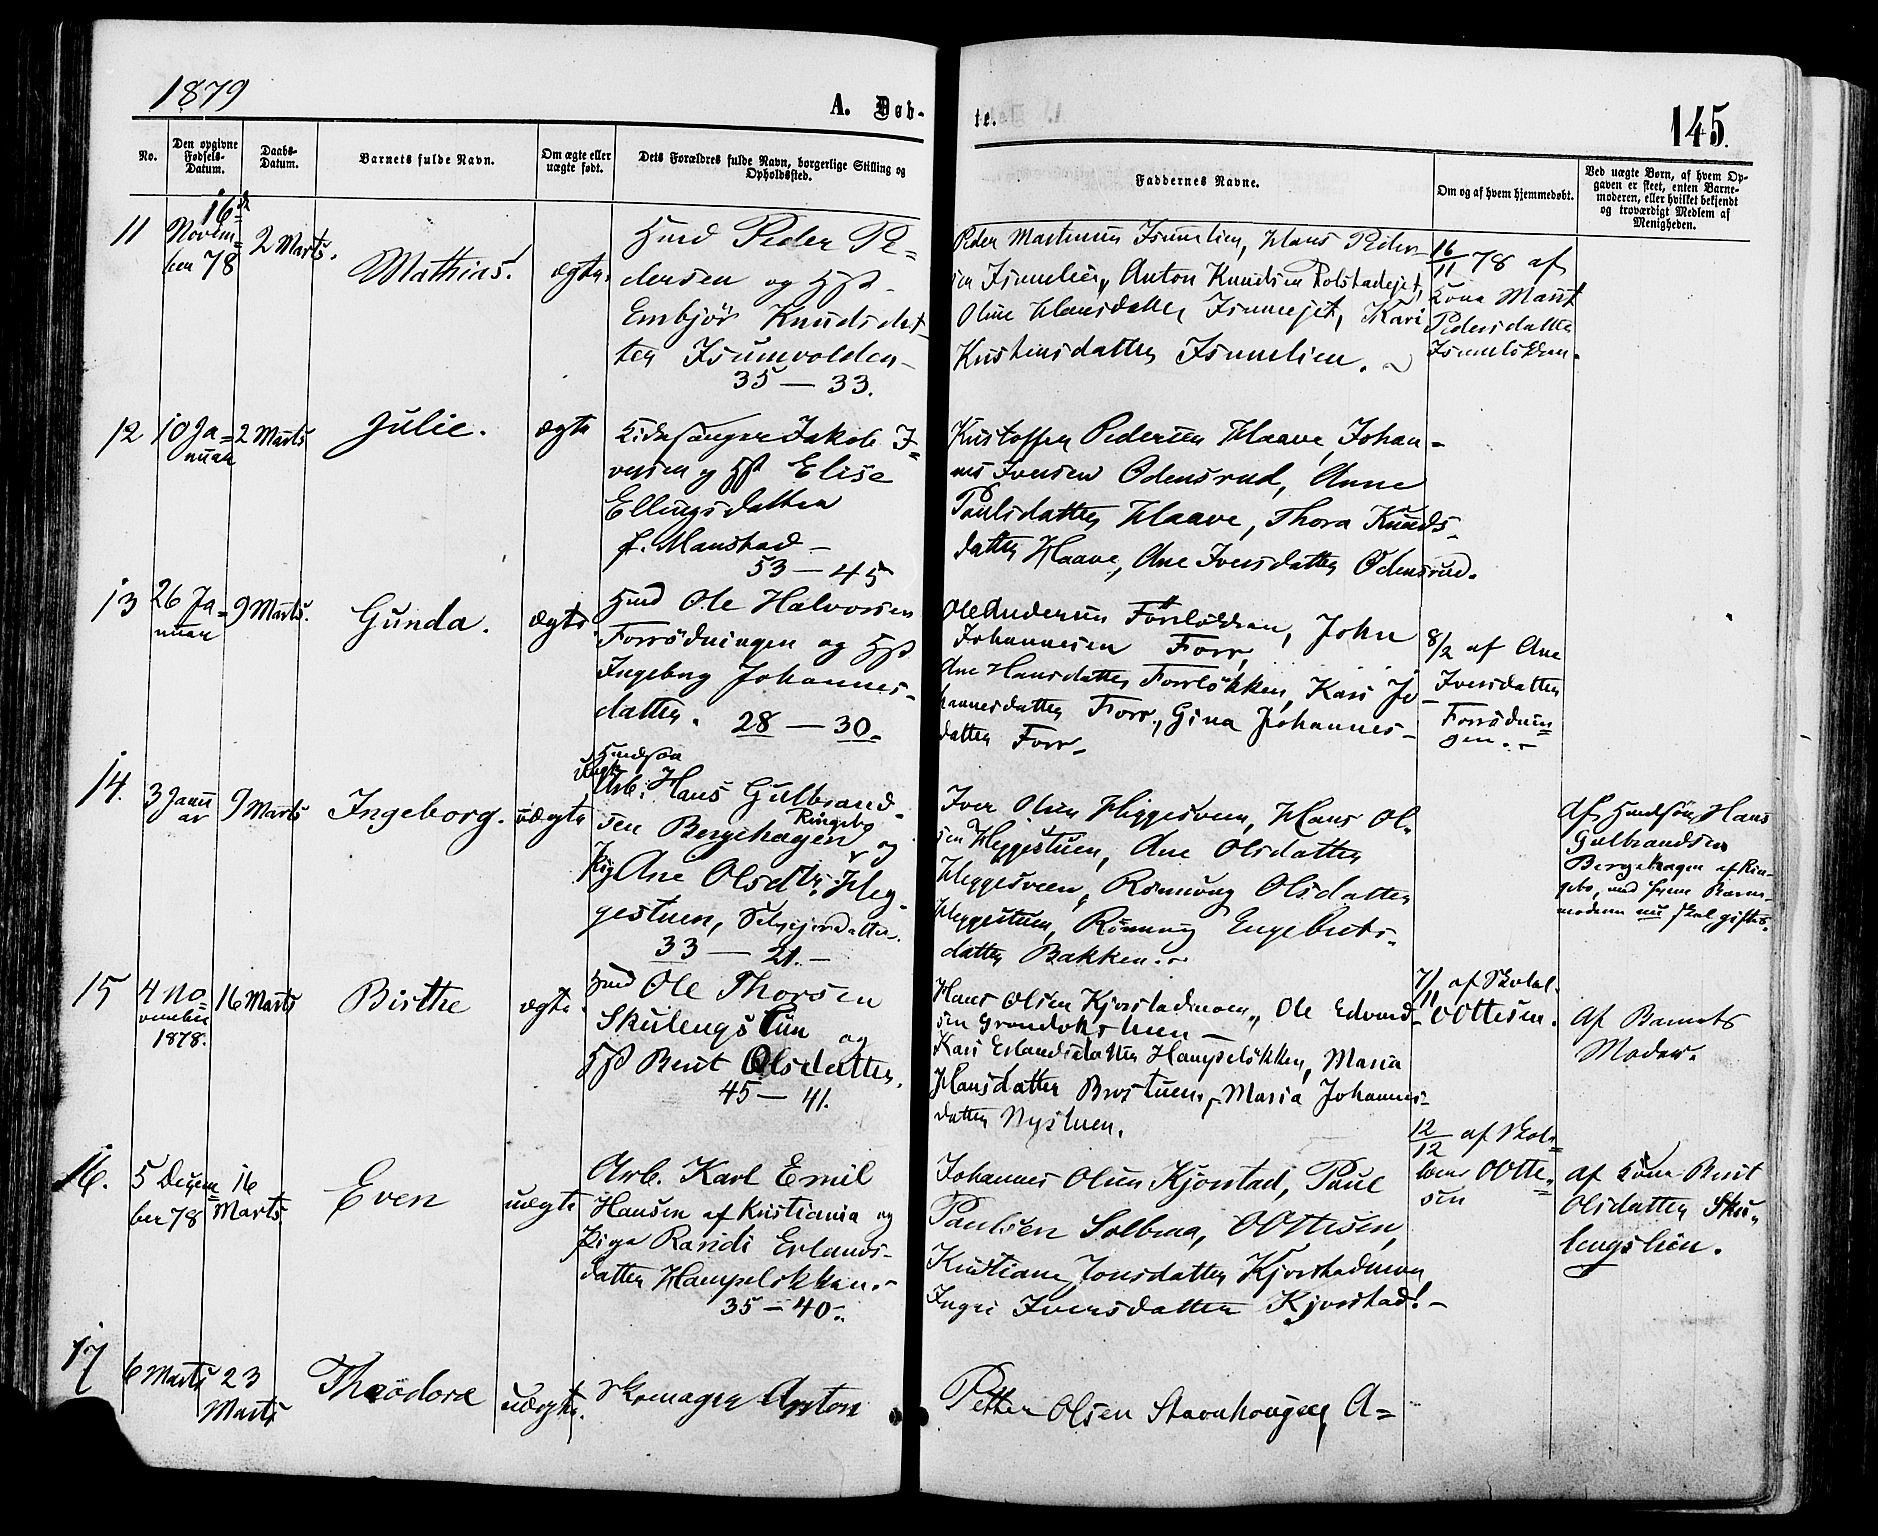 1879
A. Døb-
te.
145.
No.
Den opgivne Fødsels-Datum.
Daabs-Datum.
Barnets fulde Navn.
Om ægte eller uægte født.
Dets Forældres fulde Navn, borgerlige Stilling og Opholdssted.
Faddernes Navne.
Om og af hvem hjemmedøbt.
Ved uægte Børn, af hvem Op-
gaven er skeet, enten Barne-
moderen, eller hvilket bekjendt
og troværdigt Medlem af
Menigheden.
11
16de
Novem=
ber 78
2 Marts.
Mathias.
ægte.
Hmd Peder Pe=
dersen og Hst
Embjør Knudsdat
ter Isumvolden
35 — 33.
Peder Martinsen Isumlien, Hans Peder
sen Isumlien, Anton Knudsen Rolstadejet,
Oline Hansdatter Isumejet, Kari
Kristensdatter Isumlien.
16/11 78 af
Kona Marit
Pedersdatter
Isumløkken.
12
10 Ja=
nuar
2 Marts
Julie.
ægte
Kirkesanger Jakob I=
versen og Hst Elise
Ellingsdatter
f. Manstad —
53 — 45
Kristoffer Pedersen Haave, Johan=
nes Iversen Odensrud, Anne
Paulsdatter Haave, Thora Knuds-
datter Haave, Ane Iversdatter Odensrud.
13
26 Ja=
nuar
9 Marts.
Gunda.
ægte.
Hmd Ole Halvorsen
Forrødningen og Hst
Ingeborg Johannes-
datter. 28 — 30.
Ole Andersen Forrløkken, John
Johannesen Forr,
Ane Hansdatter Forrløkken, Kari Jo-
hannesdatter Forr., Gina Johannes-
datter Forr-
8/2 af Ane
Iversdatter
Forrødnin=
gen.-
14.
3 Janu
ar
9 Marts
Ingeborg.
uægte
Ungk.
Arb. Hans Gulbrand-
sen Bergehagen Ringebo og
Pig Ane Olsdtr. Heg-
gestuen, Selvejerdatter.
33 — 21.-
Iver Olsen Heggesveen, Hans Ol-
sen Heggestuen, Ane Olsdatter
Heggesveen, Rønnaug Olsdatter
Heggestuen, Rønnaug Engebrets-
datter Bakken.-
Af Husmdsøn Hans
Gulbrandsen
Bergehagen af Rin-
gebo, med hvem Barne-
moderen nu skal giftes.
15
4 No=
vember
1878.
16 Marts
Birthe
ægte
Hmd Ole Thorsen
Skulengslien og
Hst Berit Olsdatter.
45 — 41.
Hans Olsen Kjorstadmoen, Ole Edvard-
sen Grondokstuen —
Kari Erlandsdatter Hampeløkken, Maria
Hansdatter Brostuen, Maria Johannes-
datter Nystuen.
7/11 af Skolel.
O Ottesen.
Af Barnets
Moder.
16.
5 Decem=
ber 78
16
Marts.
Even
uægte
Arb. Karl Emil
Hansen af Kristiania og
Pige Randi Erlands-
datter Hampeløkken.-
35 — 40.-
Johannes Olsen Kjorstad, Paul
Paulsen Solbraa, O Ottesen,
Kristiane Jonsdatter Kjorstadmoen
Ingri Iversdatter Kjorstad.-
12/12 af Skol=
lærer O Otte=
sen
af Kone Berit
Olsdatter Sku-
lengslien.
17
6 Marts
23
Marts
Theodora
uægte.
Skomager Anton
Petter Olsen Stavnhougen, A=